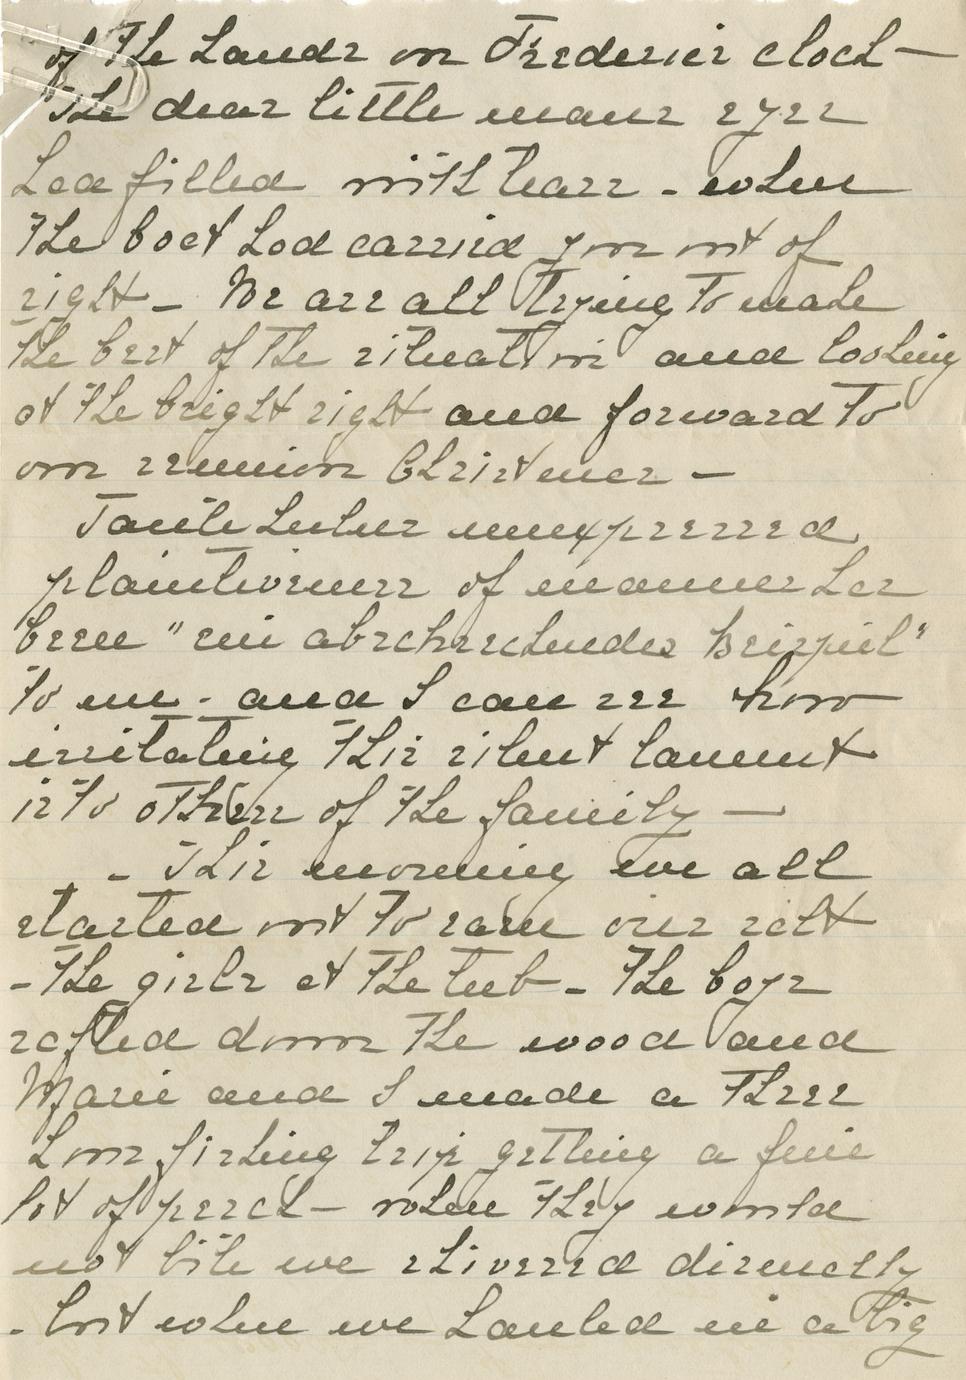 of the hands on Frederics clock—
The dear little mans eyes
had filled with tears - when
the boat had carried you out of
sight - We are all trying to make
the best of the situation and looking
at the bright sight and forward to
our reunion Christmas —
Tante unexpressed
plaintiveness of manner has
been "ein abschreckendes Beispiel"
to me - and I can see how
irritating this silent lament
is to others of the family —
- This morning we all
started out to earn our salt
- the girls at the tub - the boys
rafted down the wood and
Marie and I made a three
hour fishing trip getting a fine
lot of perch - when they would
not bite we shivered directly
- but when we hauled in a big